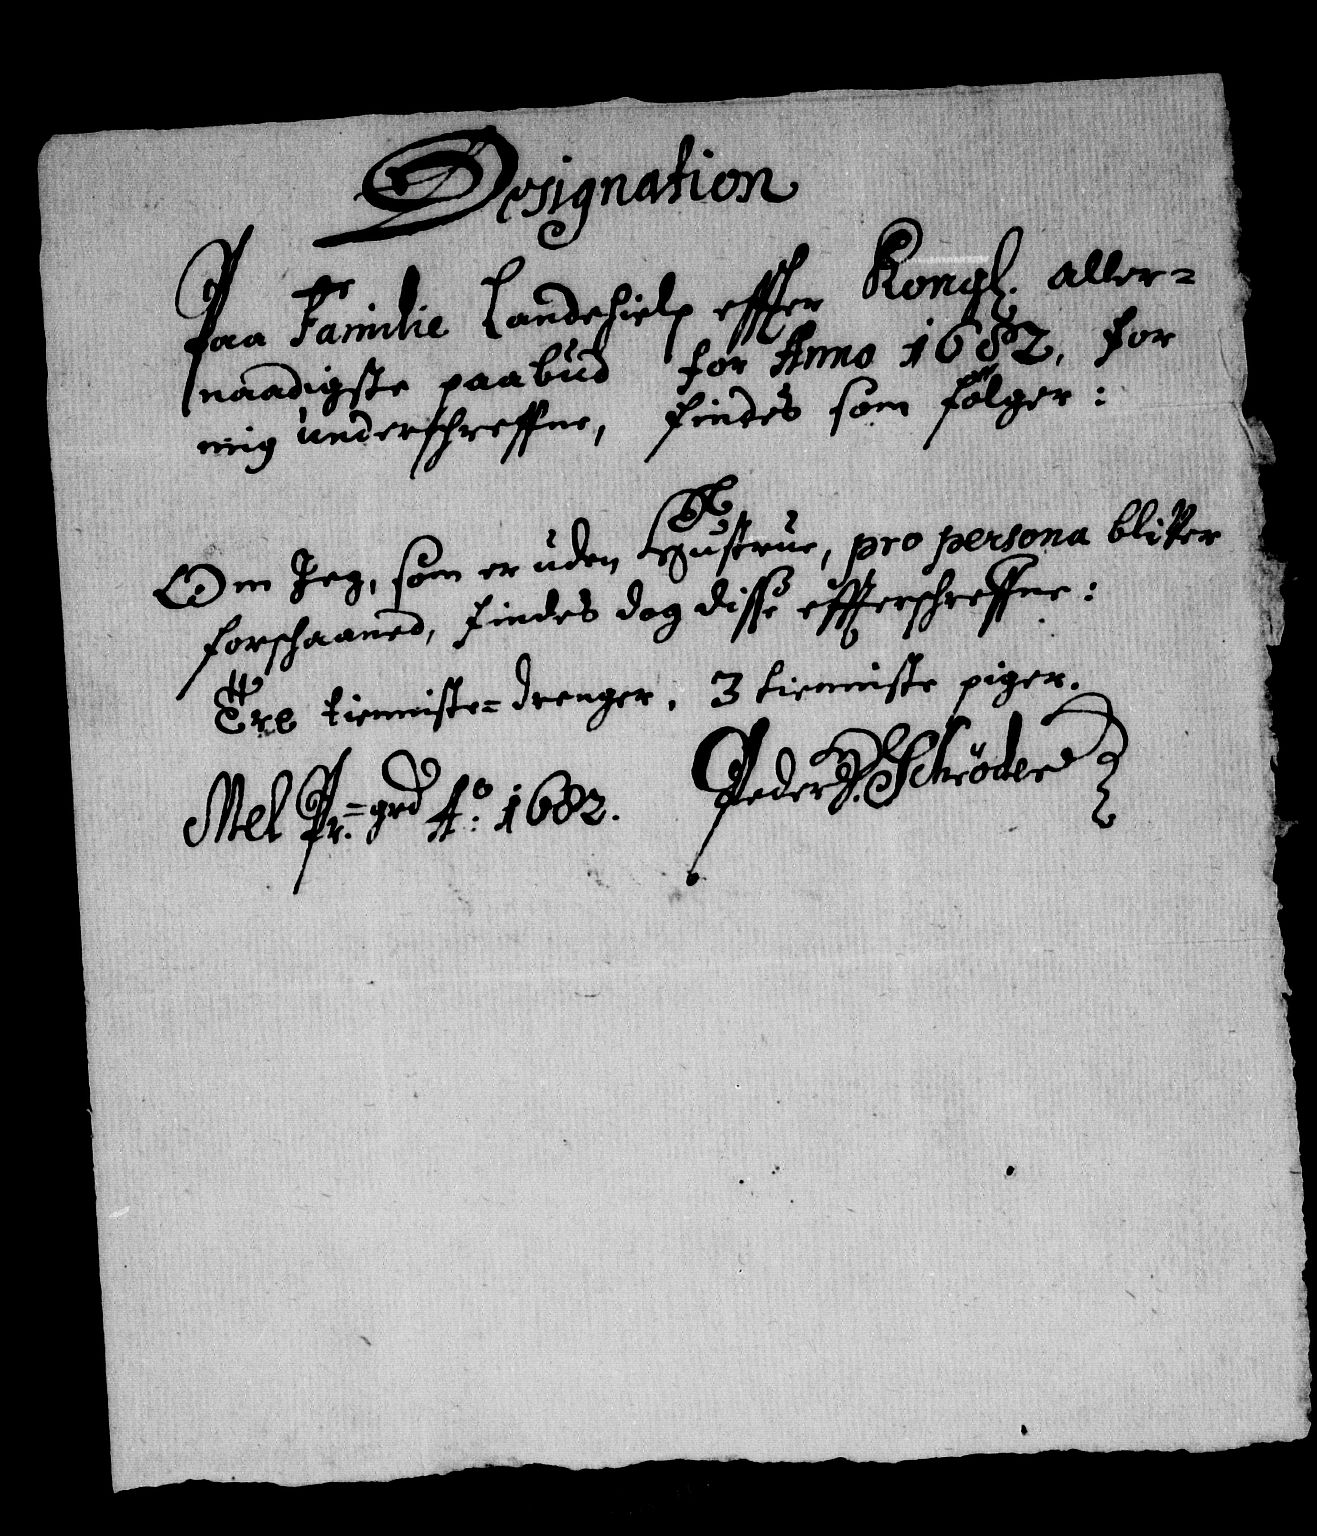 Designation
Paa Familie Landehielp effter Kongl. aller=
naadigste paabŭd for Anno 1682, for
mig ŭnderschreffne, findes som følger:
Om Jeg, som er ŭden Hŭstrŭe, pro persona bliver
forschaaned, findes dog disse effterschreffne:
Tre tienniste=drenger, 3 tienniste piger.
Mel Pr.=grd Ao: 1682. Peder Schröder